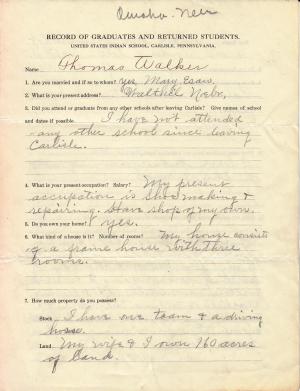 Omaha. Neb
RECORD OF GRADUATES AND RETURNED STUDENTS.
UNITED STATES INDIAN SCHOOL, CARLISLE, PENNSYLVANIA.
Name Thomas Walker
1. Are you married and if so to whom? yes, Mary Esau,
2. What is your present address? Walthill Nebr,
3. Did you attend or graduate from any other schools after leaving Carlisle? Give names of school
and dates if possible. I have not attended
any other school since leaving
Carlisle.
4. What is your present occupation? Salary? My present
occupation is shoe making &
repairing. Have shop of my own.
5. Do you own your home? yes.
6. What kind of house is it? Number of rooms? My house consists
of a frame house with three
rooms.
7. How much property do you possess?
Stock I have one team & a driving
horse.
Land My wife & I own 160 acres
of land.